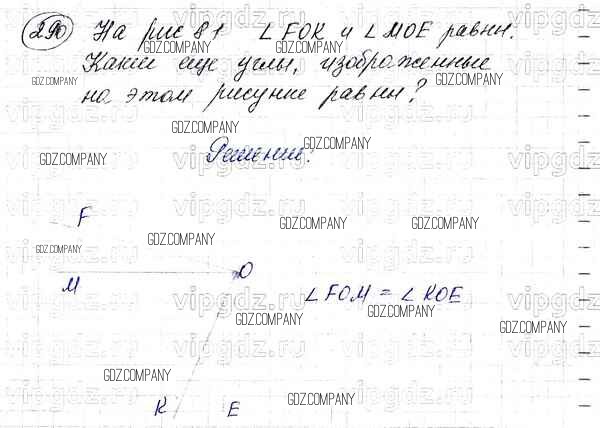 290 На рис 81 ∠ FOK и ∠ MOE равны.
Какие еще углы, изображенные
на этом рисунке равны?
Решение:
F
M
O
∠ FOM = ∠ KOE
K E
GDZ.COMPANY
vipgdz.ru